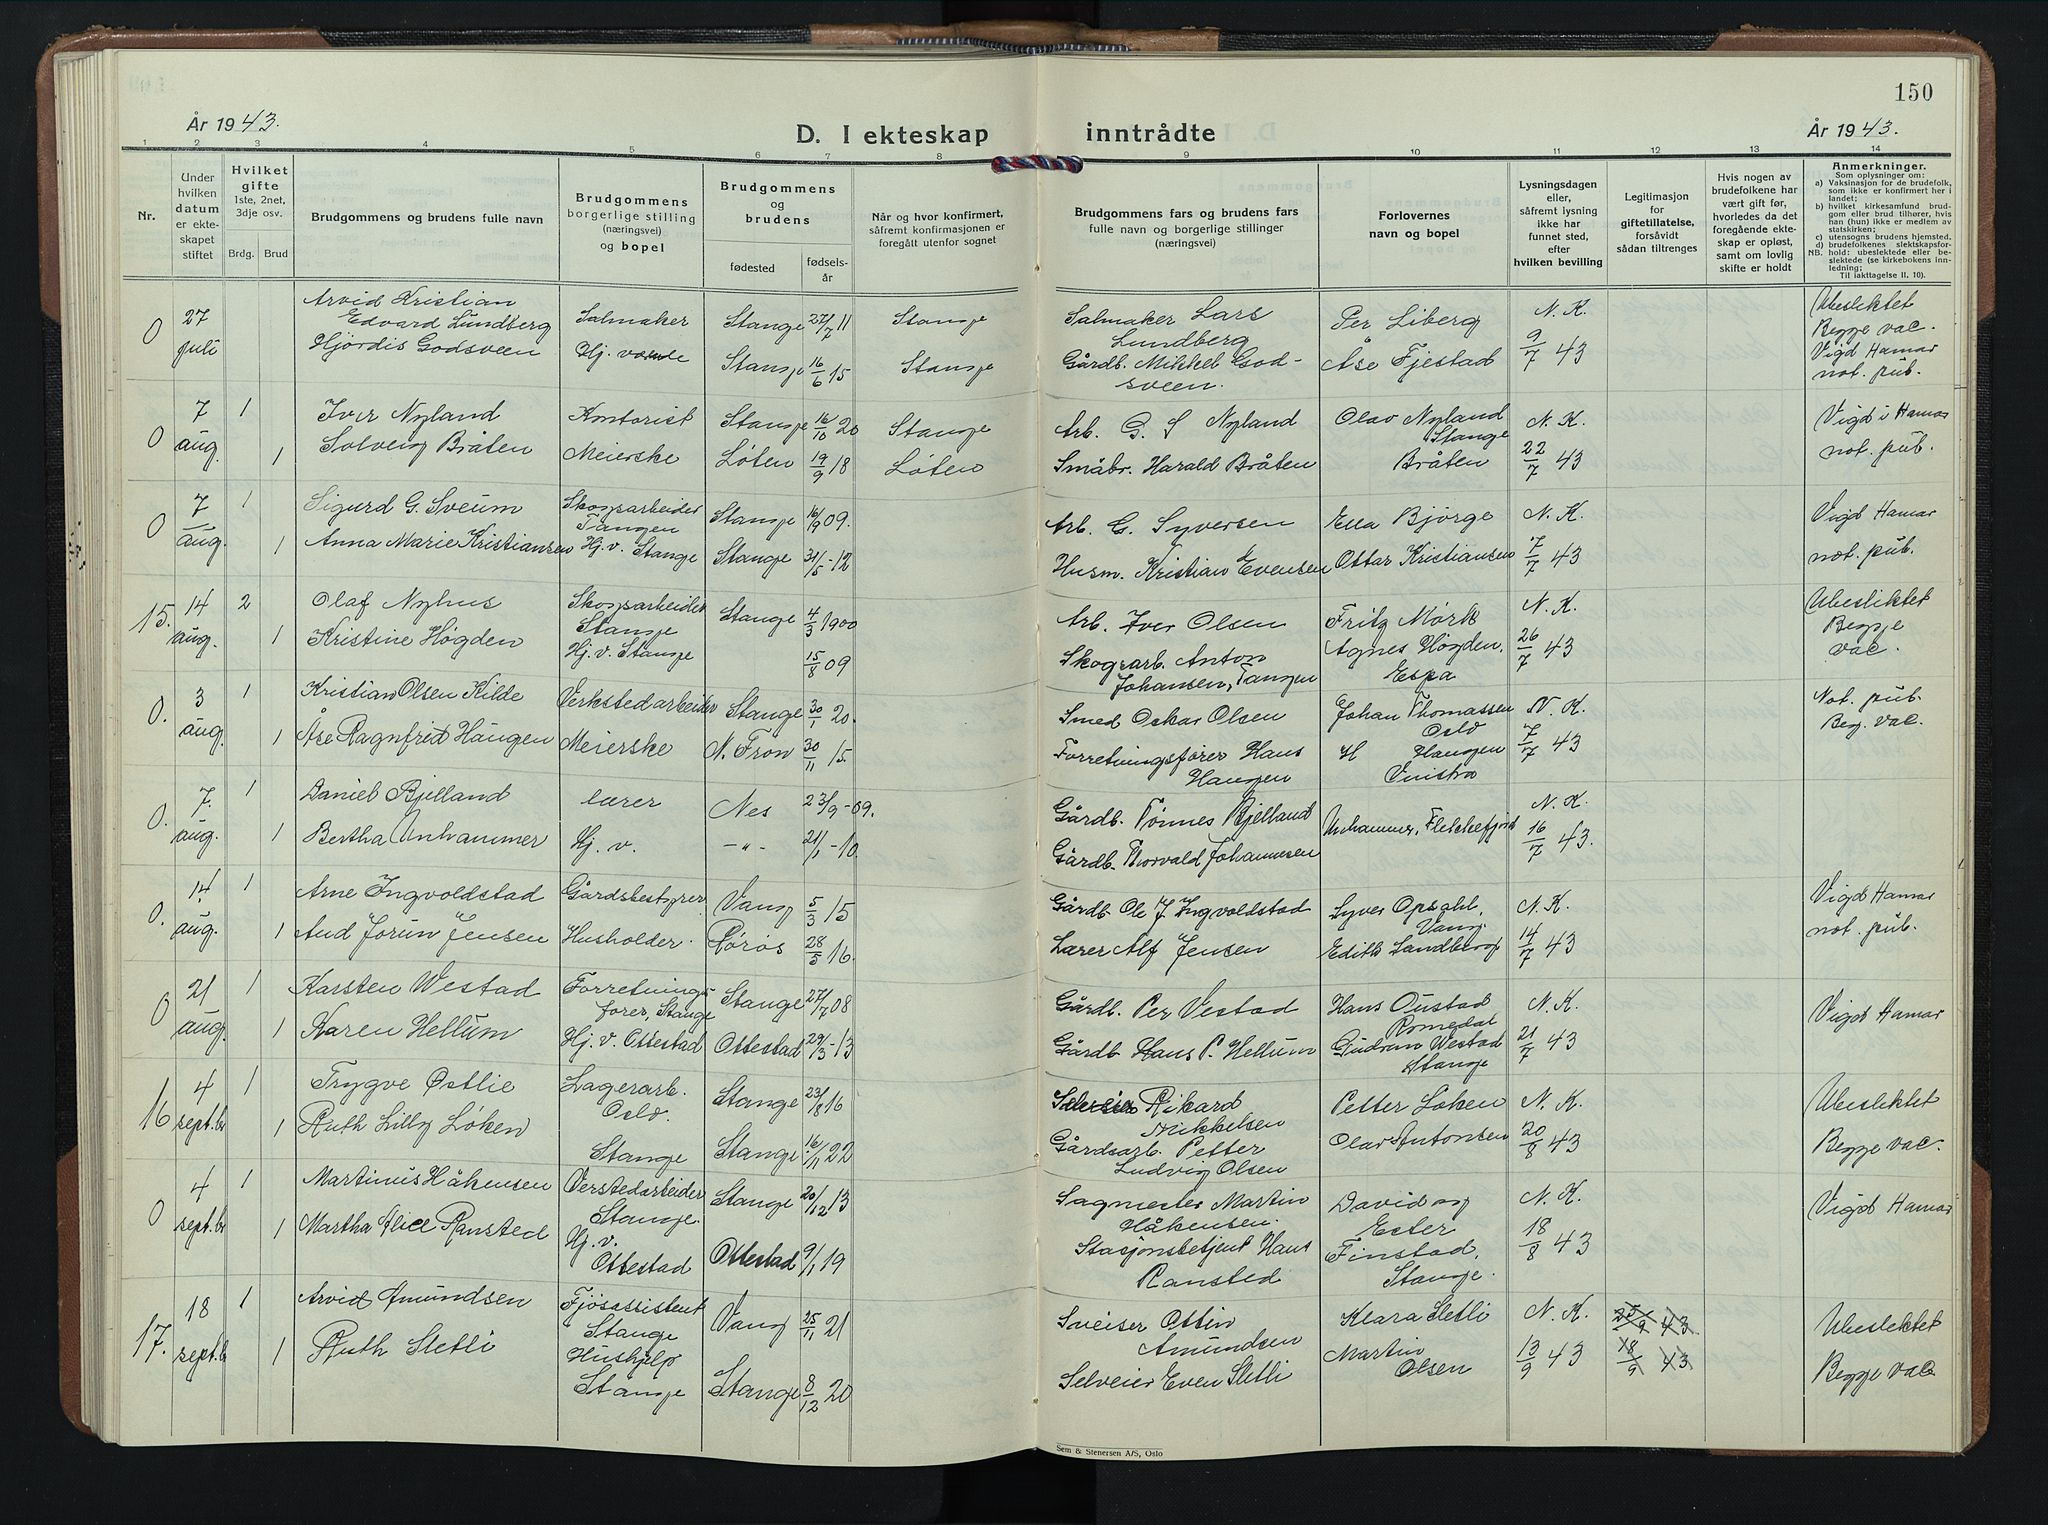 150
År 1943.
D. I ekteskap inntrådte
År 1943.
1 2 3 4 5 6 7 8 9 10 11 12 13 14
Nr.
Under
hvilken
datum
er ekte-
skapet
stiftet
Hvilket
gifte
1ste, 2net,
3dje osv.
Brdg. Brud
Brudgommens og brudens fulle navn
Brudgommens
borgerlige stilling
(næringsvei)
og bopel
Brudgommens
og
brudens
fødested
fødsels-
år
Når og hvor konfirmert,
såfremt konfirmasjonen er
foregått utenfor sognet
Brudgommens fars og brudens fars
fulle navn og borgerlige stillinger
(næringsvei)
Forlovernes
navn og bopel
Lysningsdagen
eller,
såfremt lysning
ikke har
funnet sted,
efter
hvilken bevilling
Legitimasjon
for
giftetillatelse,
forsåvidt
sådan tiltrenges
Hvis nogen av
brudefolkene har
vært gift før,
hvorledes da det
foregående ekte-
skap er opløst,
samt om lovlig
skifte er holdt
Anmerkninger.
Som oplysninger om:
a) Vaksinasjon for de brudefolk,
som ikke er konfirmert her i
landet;
b) hvilket kirkesamfund brud-
gom eller brud tilhører, hvis
han (hun) ikke er medlem av
statskirken;
c) utensogns brudens hjemsted.
d) brudefolkenes slektskapsfor-
NB. hold: ubeslektede eller be-
slektede (se kirkebokens inn-
ledning;
Til iakttagelse II, 10).
0 27 juli
Arvid Kristian
Edvard Lundberg
Salmaker Stange 27/7 11 Stange
Hjördis Godsveen
Hj. værende Stange 16/6 15 Stange
Salmaker Lars
Lundberg
Gårdb. Mikkel God-
sveen.
Per Liberg
Åse Fjestad
N. K.
9/7 43
Ubeslektet
Begge vac.
Vigd Hamar
not. pub.
0 7 aug. 1
Iver Nyland Kontorist Stange 16/10 20 Stange
1 Solveig Bråten Meierske Løten 19/9 18 Løten
Arb. G. S Nyland
Småbr. Harald Bråten
Olav Nyland
Stange
Bråten
N. K.
22/7 43
Vigd i Hamar
not. pub.
0 7 aug. 1
Sigurd G. Sveum Skogsarbeider
Tangen Stange 16/9 09.
1 Anna Marie Kristiansen Hj. v. Stange Stange 31/5-12
Arb. G. Syversen
Husm. Kristian Evensen
Ella Bjørge
Ottar Kristiansen
N. K.
7/7 43
Vigd Hamar
not. pub.
15. 14 aug. 2
Olaf Nyhus Skogsarbeider
Stange Stange 4/3 1900
1 Kristine Høgden Hj. v. Stange 15/8 09
Arb. Iver Olsen
Skogsarb. Anton
Johansen, Tangen
Fritz Mørk
Agnes Høgden.
Espa
N. K.
26/7 43
Ubeslektet
Begge
vac.
0. 3 aug. 1
Kristian Olsen Kilde Verkstedarbeider Stange 30/1 20.
1 Åse Ragnfrid Haugen Meierske N. Fron 30/11 15.
Smed Oskar Olsen
Forretningsfører Hans
Haugen
Johan Thomassen
Oslo
H Haugen
Vinstra
N. K.
7/7 43
Not. pub
Beg. vac.
0. 7. aug. 1
Daniel Bjelland lærer Nes 23/9-09.
1 Bertha Unhammer Hj. v. -"- 21/1-10.
Gårdb. Tønnes Bjelland
Gårdb. Thorvald Johannesen
Unhammer, Flekkefjord
N. K.
16/7 43.
0. 14. aug. 1
Arne Ingvoldstad Gårdsbestyrer Vang 5/3 15
1 Aud Jorun Jensen Husholder. Røros 28/5 16.
Gårdb. Ole J. Ingvoldstad
Lærer Alf Jensen
Syver Opsahl,
Vang.
Edith Sandberg
N. K.
14/7 43
Vigd Hamar
not. pub.
0 21 aug. 1
Karsten Westad Forretnings
fører, Stange Stange 27/7 08
1 Karen Hellum Hj. v. Ottestad Ottestad 29/3-13
Gårdb. Per Vestad
Gårdb Hans P. Hellum
Hans Oustad
Romedal
Gudrun Westad
Stange
N. K.
21/7 43
Vigd Hamar
16 4 sept.br 1
Trygve Østlie Lagerarb.
Oslo. Stange 23/8 16
1 Ruth Lilly Løken Stange Stange 16/11 22
Rikard
Mikkelsen
Gårdsarb. Petter
Ludvig Olsen
Petter Løken
Olav Antonsen
N. K.
20/8 43
Ubeslektet
Begge vac.
0 4 sept.br 1
Martinus Håkensen Verstedarbeider
Stange. Stange 20/12 13
1 Martha Alice Ransted Hj. v.
Ottestad Ottestad 9/1 19
Sagmester Martin
Håkensen.
Stasjonsbetjent Hans
Ransted
David og
Ester
Finstad,
Stange.
N. K.
18/8 43
Vigd Hamar
17. 18 sept.br 1
Arvid Amundsen Fjøsassistent
Stange Vang 25/11 21
1 Ruth Sletli Hushjelp
Stange Stange 8/12 20
Sveiser Ottin
Amundsen
Selveier Even Sletli
Klara Sletli
Martin
Olsen
N. K.
13/9 43
25/9 43
18/9 43
Ubeslektet
Begge vac.
Sem & Stenersen A/S, Oslo